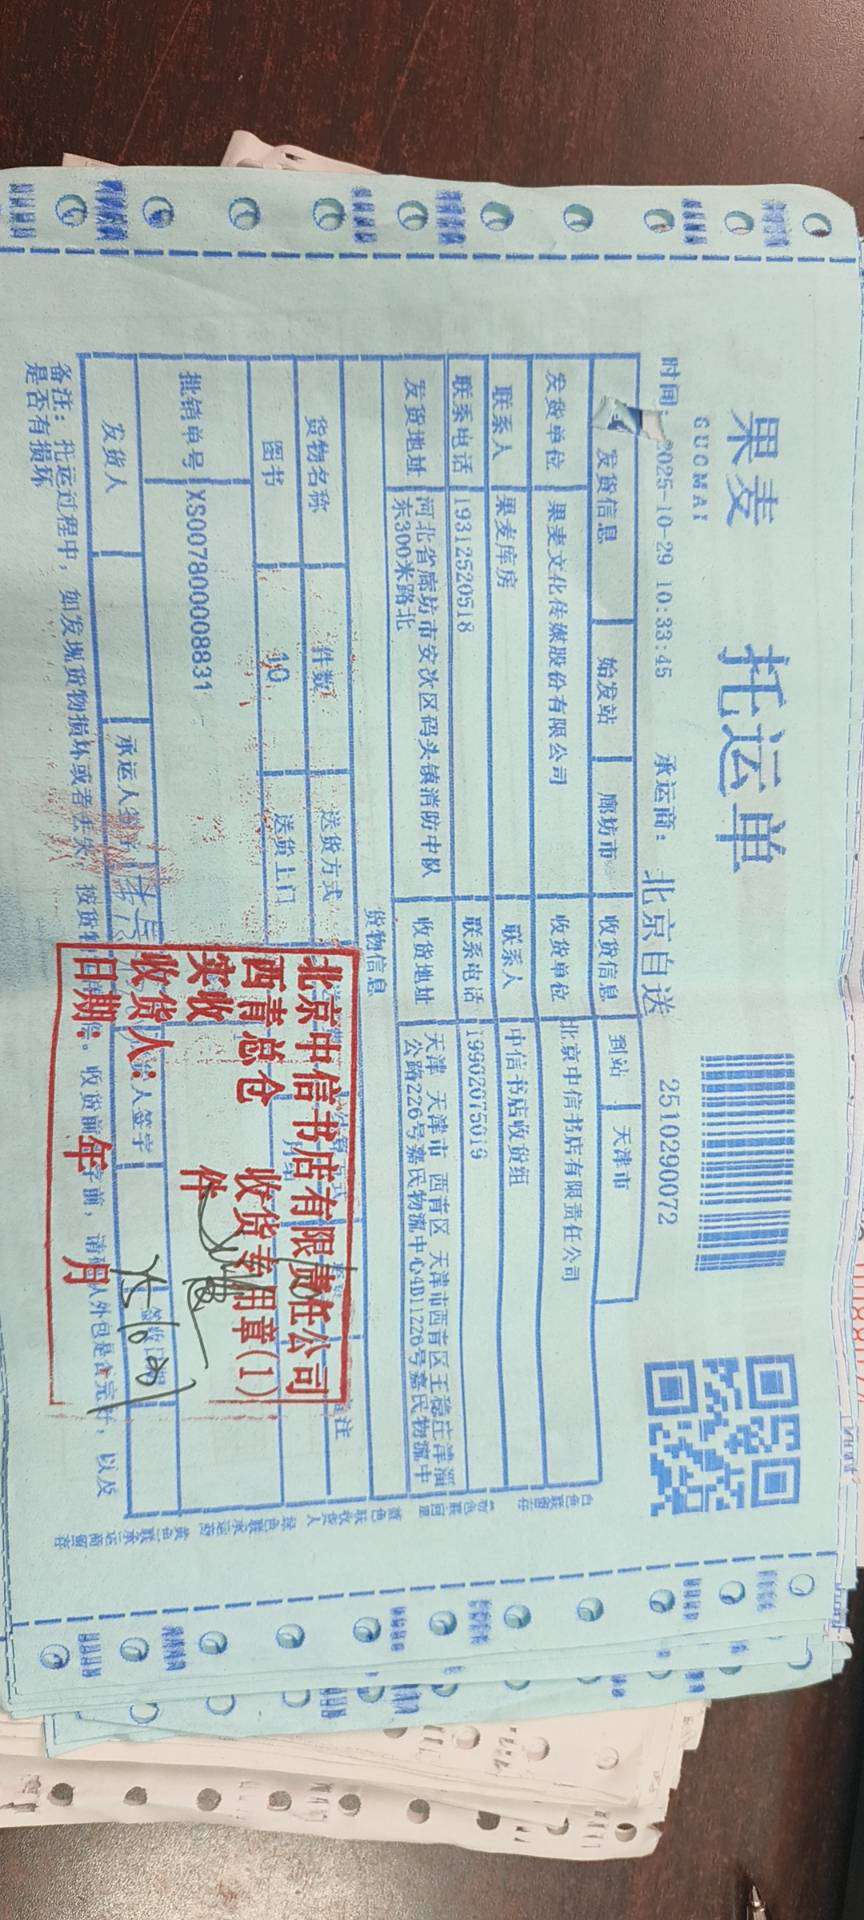 果麦
GUOMAI
托运单
时间：2025-10-29 10:33:45 承运商：北京自送 2510290072
发货信息 始发站 廊坊市 收货信息 到站 天津市
发货单位 果麦文化传媒股份有限公司 收货单位 北京中信书店有限责任公司
联系人 果麦库房 联系人 中信书店收货组
联系电话 19312520518 联系电话 19902075019
发货地址 河北省廊坊市安次区码头镇消防中队
东300米路北
收货地址 天津 天津市 西青区 天津市西青区王稳庄津淄
公路226号嘉民物流中心4D11226号嘉民物流中
货物信息
货物名称 件数 送货方式
图书 10 送货上门
批销单号 XS007800008831
发货人 承运人签字
备注：托运过程中，如发现货物损坏或者丢失，按货
收货前 字前，请 人外包是否完好，以及
是否有损坏
北京中信书店有限责任公司
西青总仓 收货专用章(1)
实收 件
收货人：
日期： 年 月